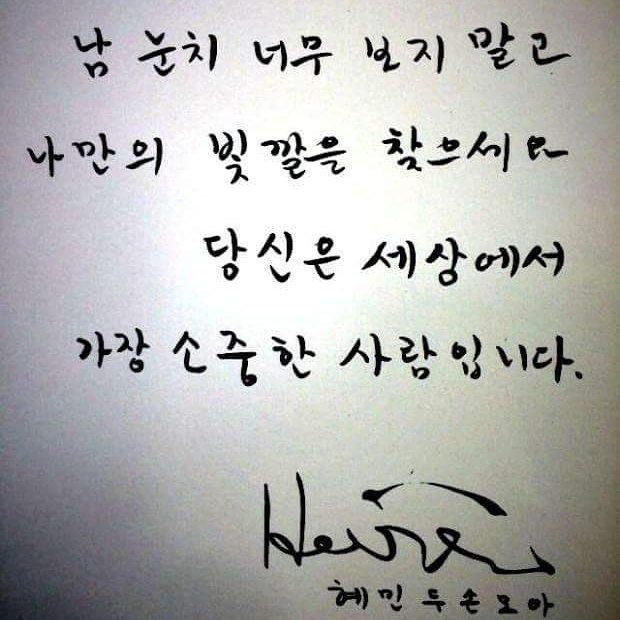 남 눈치 너무 보지 말고
나만의 빛깔을 찾으세요
당신은 세상에서
가장 소중한 사람입니다.
혜민 두손모아